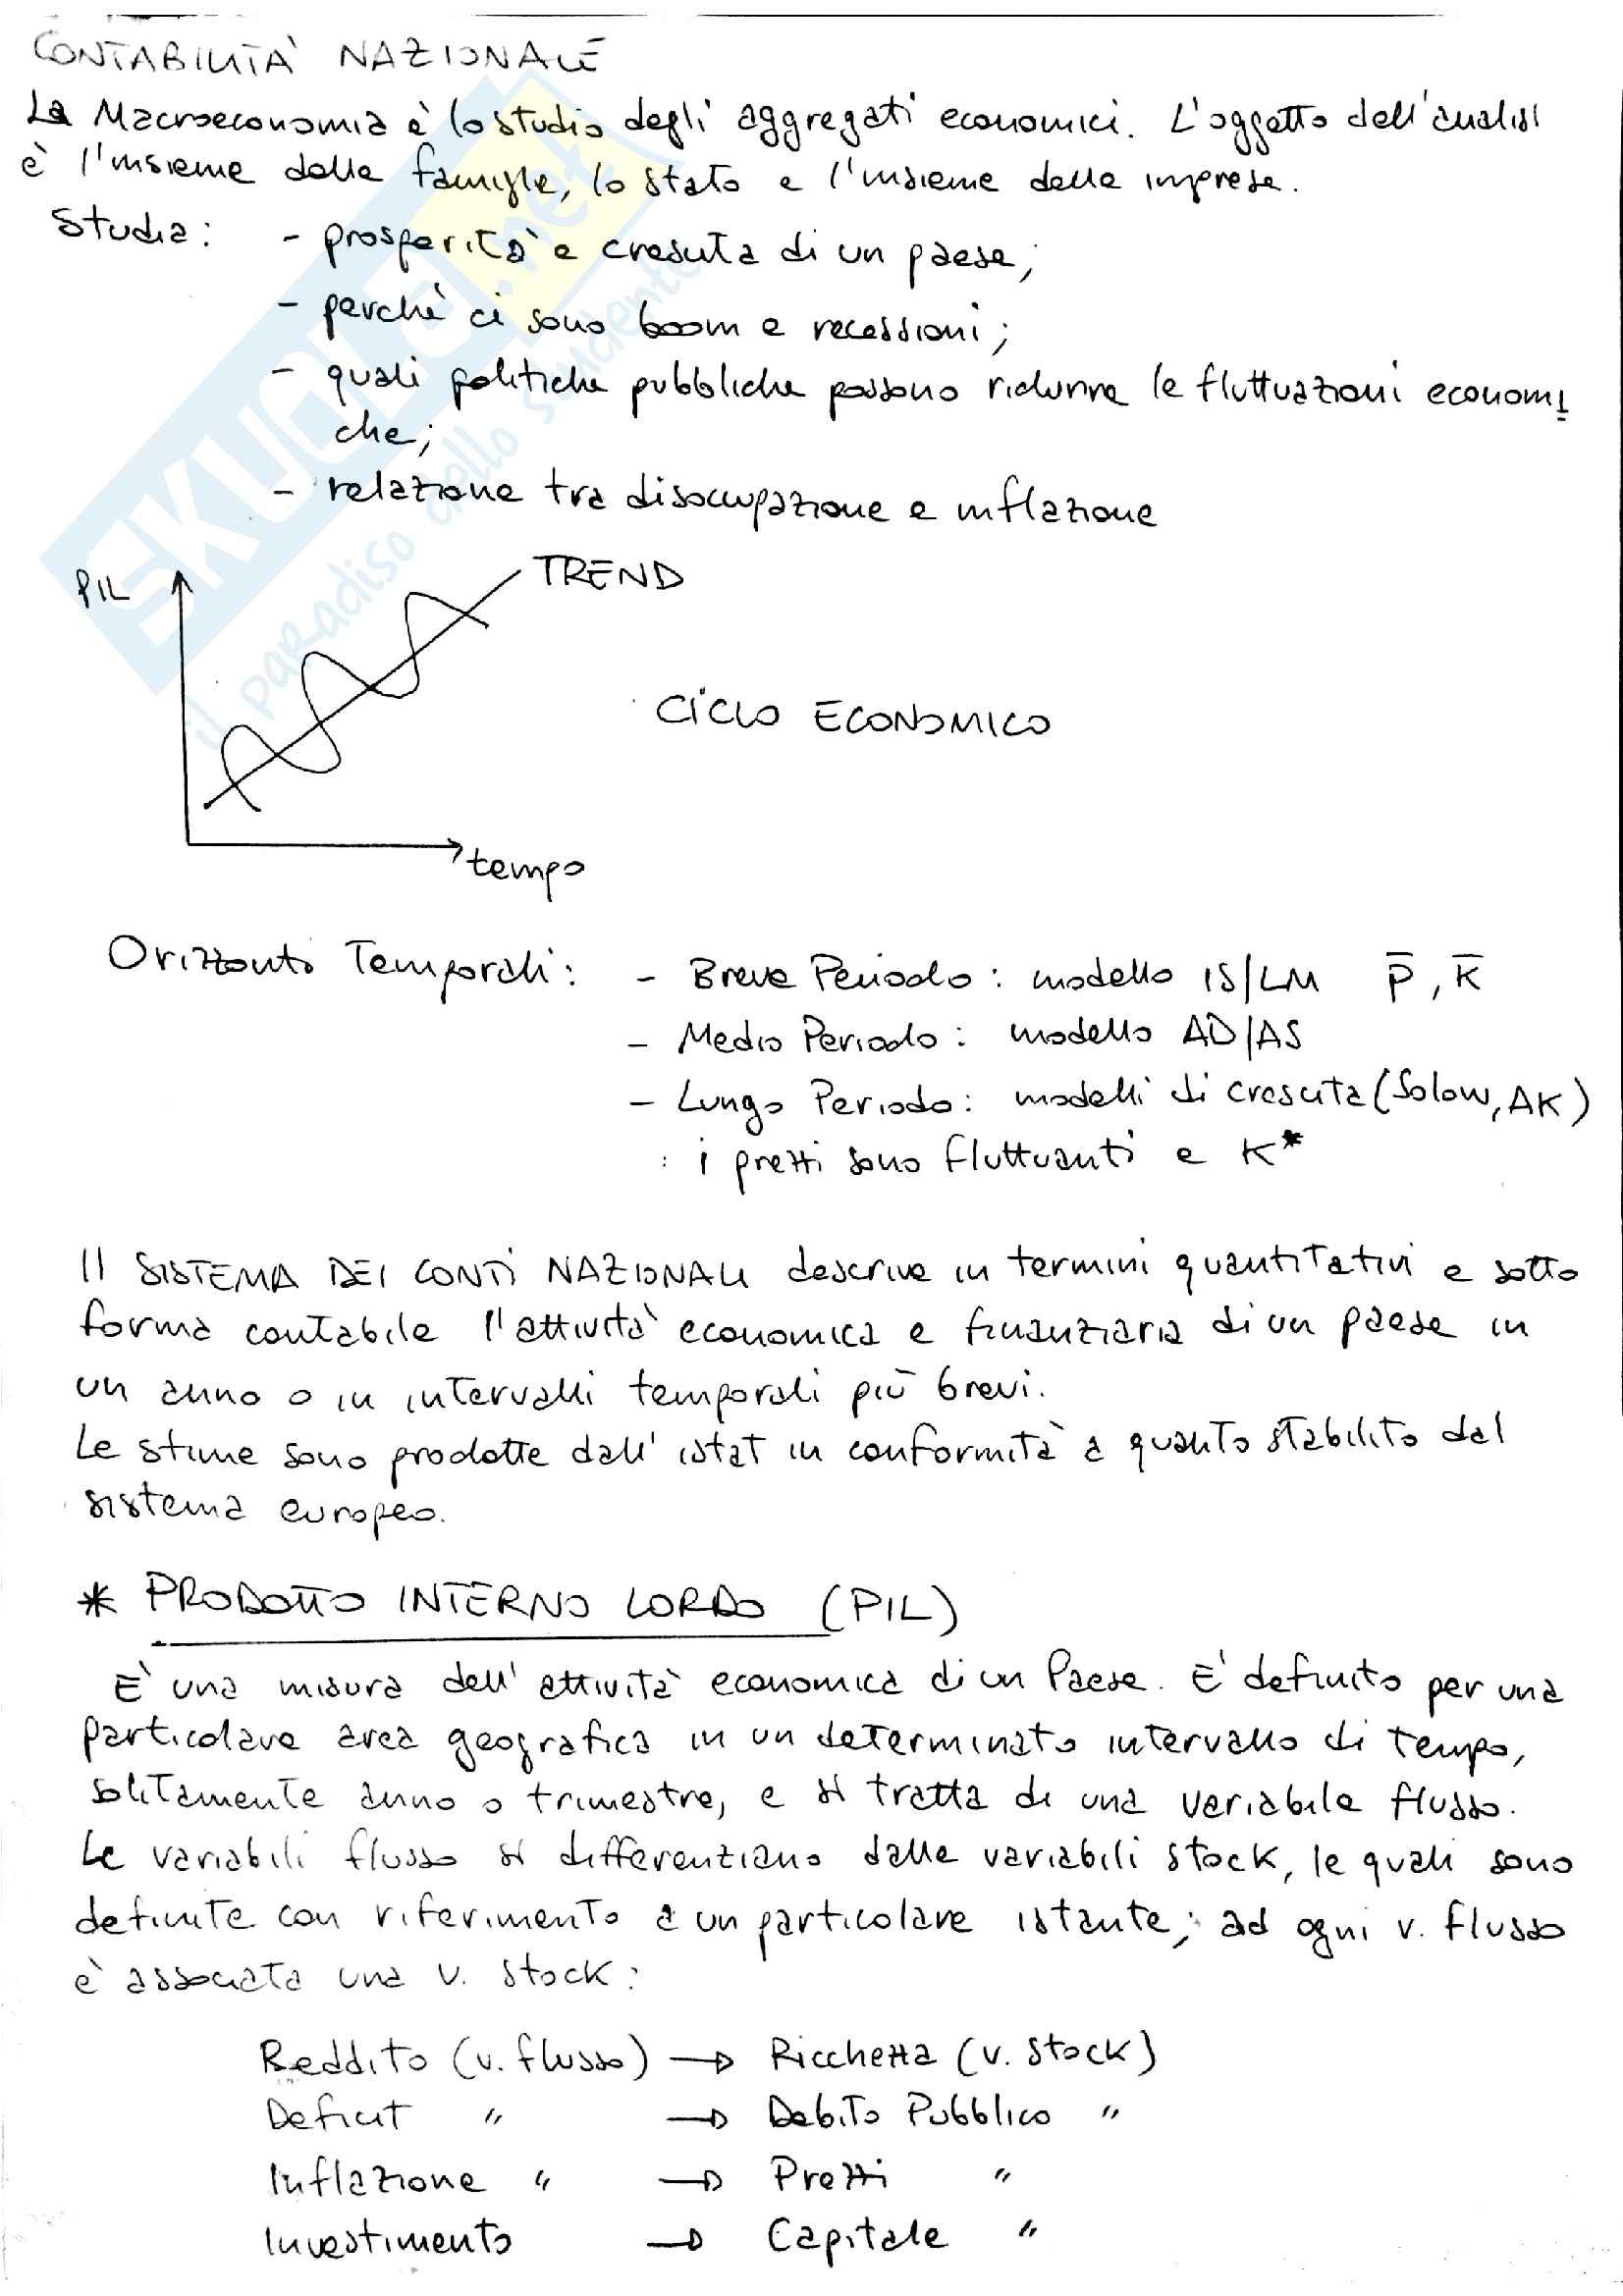 CONTABILITÀ NAZIONALE
La Macroeconomia è lo studio degli aggregati economici. L'oggetto dell'analisi
è l'insieme delle famiglie, lo stato e l'insieme delle imprese.
Studia: - prosperità e crescita di un paese;
- perchè ci sono boom e recessioni;
- quali politiche pubbliche possono ridurre le fluttuazioni economi
che;
- relazione tra disoccupazione e inflazione
PIL
TREND
CICLO ECONOMICO
tempo
Orizzonti Temporali: - Breve Periodo: modello IS/LM P̅, K̅
- Medio Periodo: modello AD/AS
- Lungo Periodo: modelli di crescita (Solow, AK)
: i prezzi sono fluttuanti e K*
Il SISTEMA DEI CONTI NAZIONALI descrive in termini quantitativi e sotto
forma contabile l'attività economica e finanziaria di un paese in
un anno o in intervalli temporali più brevi.
Le stime sono prodotte dall'istat in conformità a quanto stabilito dal
sistema europeo.
* PRODOTTO INTERNO LORDO (PIL)
E' una misura dell'attività economica di un Paese. E' definito per una
particolare area geografica in un determinato intervallo di tempo,
solitamente anno o trimestre, e si tratta di una variabile flusso.
Le variabili flusso si differenziano dalle variabili stock, le quali sono
definite con riferimento a un particolare istante; ad ogni v. flusso
è associata una v. stock:
Reddito (v. flusso) → Ricchezza (v. stock)
Deficit " → Debito Pubblico "
Inflazione " → Prezzi "
Investimento → Capitale "
SKUOLA.net
il paradiso dello studente